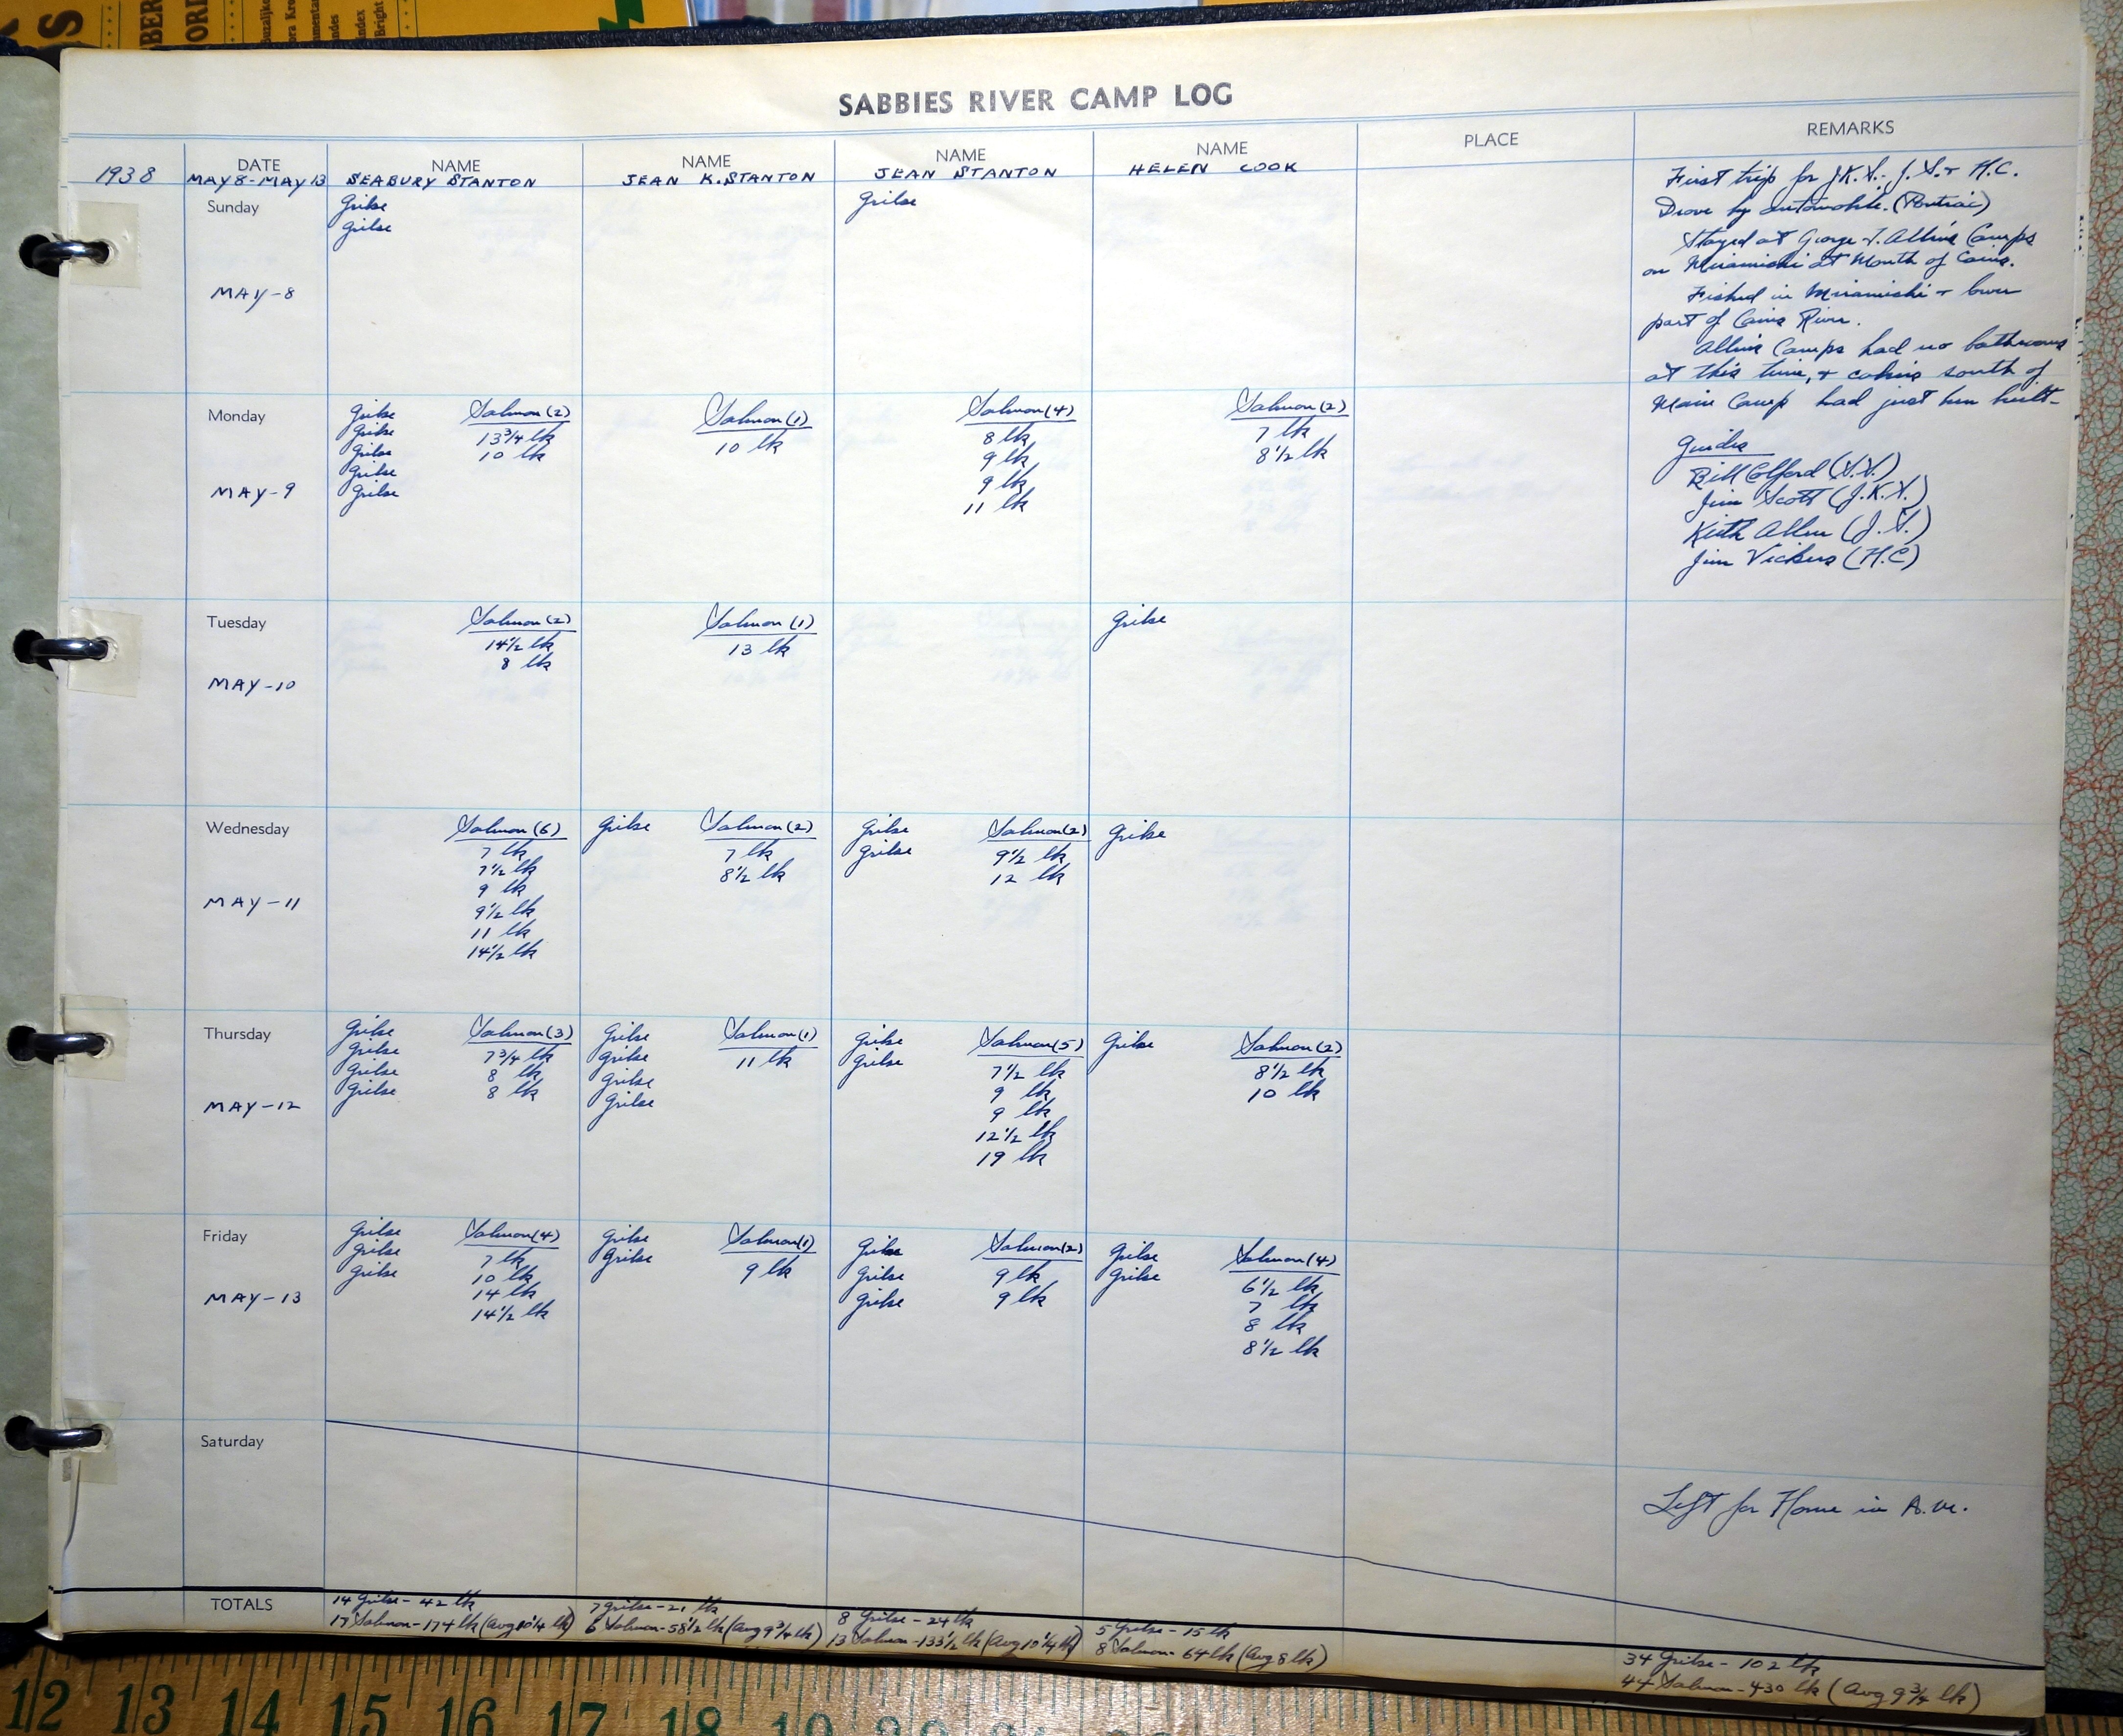 SABBIES RIVER CAMP LOG
DATE NAME NAME NAME NAME PLACE REMARKS
1938 MAY 8-MAY 13 SEABURY STANTON JEAN K. STANTON JEAN STANTON HELEN COOK
First trip for J.K.S.- J.S. + H.C.
Drove by automobile. (Pontiac)
Stayed at George T. Allen's Camps
on Miramichi at Mouth of Cains.
Fished in Miramichi + lower
part of Cains River.
Allen's Camps had no bathrooms
at this time, + cabins south of
Main Camp had just been built-
Guides
Bill Colford (S.S.)
Jim Scott (J.K.S.)
Keith Allen (J.S.)
Jim Vickers (H.C)
Sunday
MAY-8
Grilse
Grilse
Grilse
Monday
MAY-9
Grilse
Grilse
Grilse
Grilse
Grilse
Salmon (2)
13 3/4 lb
10 lb
Salmon (1)
10 lb
Salmon (4)
8 lb
9 lb
9 lb
11 lb
Salmon (2)
7 lb
8 1/2 lb
Tuesday
MAY-10
Salmon (2)
14 1/2 lb
8 lb
Salmon (1)
13 lb
Grilse
Wednesday
MAY-11
Salmon (6)
7 lb
7 1/2 lb
9 lb
9 1/2 lb
11 lb
14 1/2 lb
Grilse
Salmon (2)
7 lb
8 1/2 lb
Grilse
Grilse
Salmon (2)
9 1/2 lb
12 lb
Grilse
Thursday
MAY-12
Grilse
Grilse
Grilse
Grilse
Salmon (3)
7 3/4 lb
8 lb
8 lb
Grilse
Grilse
Grilse
Grilse
Salmon (1)
11 lb
Grilse
Grilse
Salmon (5)
7 1/2 lb
9 lb
9 lb
12 1/2 lb
19 lb
Grilse
Salmon (2)
8 1/2 lb
10 lb
Friday
MAY-13
Grilse
Grilse
Grilse
Salmon (4)
7 lb
10 lb
14 lb
14 1/2 lb
Grilse
Grilse
Salmon (1)
9 lb
Grilse
Grilse
Grilse
Salmon (2)
9 lb
9 lb
Grilse
Grilse
Salmon (4)
6 1/2 lb
7 lb
8 lb
8 1/2 lb
Saturday
Left for Home in A.M.
TOTALS
14 Grilse - 42 lb
17 Salmon - 174 lb (Avg 10 1/4 lb)
7 Grilse - 21 lb
6 Salmon - 58 1/2 lb (Avg 9 3/4 lb)
8 Grilse - 24 lb
13 Salmon - 133 1/2 lb (Avg 10 1/4 lb)
5 Grilse - 15 lb
8 Salmon - 64 lb (Avg 8 lb)
34 Grilse - 102 lb
44 Salmon - 430 lb (Avg 9 3/4 lb)
12 13 14 15 16 17 18 19